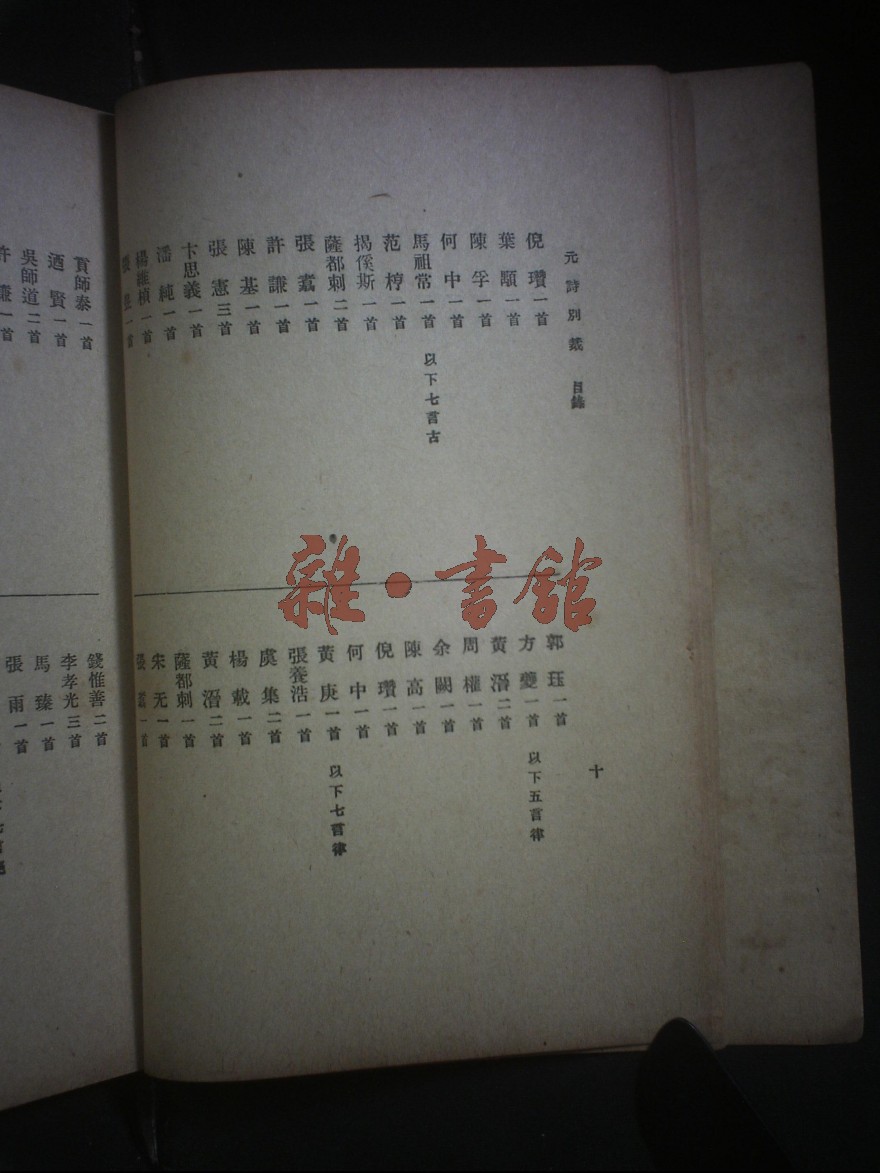 元詩別裁 目錄
十
倪瓚一首
葉顒一首
陳孚一首
何中一首
馬祖常一首 以下七言古
范梈一首
揭傒斯一首
薩都剌二首
張翥一首
許謙一首
陳基一首
張憲三首
卞思義一首
潘純一首
楊維楨一首
郭珏一首
方夔一首 以下五言律
黃溍二首
周權一首
余闕一首
陳高一首
倪瓚一首
何中一首
黃庚一首 以下七言律
張養浩一首
虞集二首
楊載一首
黃溍二首
薩都剌一首
朱无一首
張翥一首
貢師泰一首
迺賢一首
吳師道二首
許謙一首
錢惟善二首
李孝光三首
馬臻一首
張雨一首
雜·書館